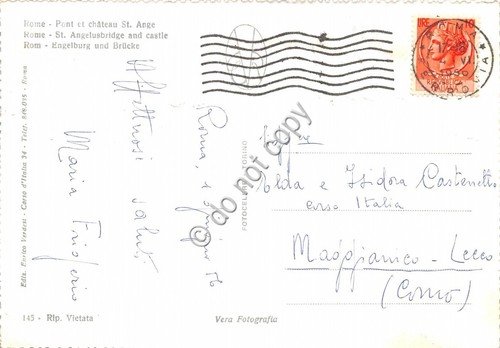 Rome - Pont et château St. Ange
Rome - St. Angelusbridge and castle
Rom - Engelburg und Brücke
Affettuosi saluti
Maria
Roma, 13 giugno 56
Ediz. Enrico Verdesi - Corso d'Italia 34 - Telef. 848.035 - Roma
FOTOCELERE TORINO
LIRE 10
ROMA
Elda e Isidora Castenetto
corso Italia
Maggianico - Lecco
(Como)
145 - Rip. Vietata
Vera Fotografia
do not copy